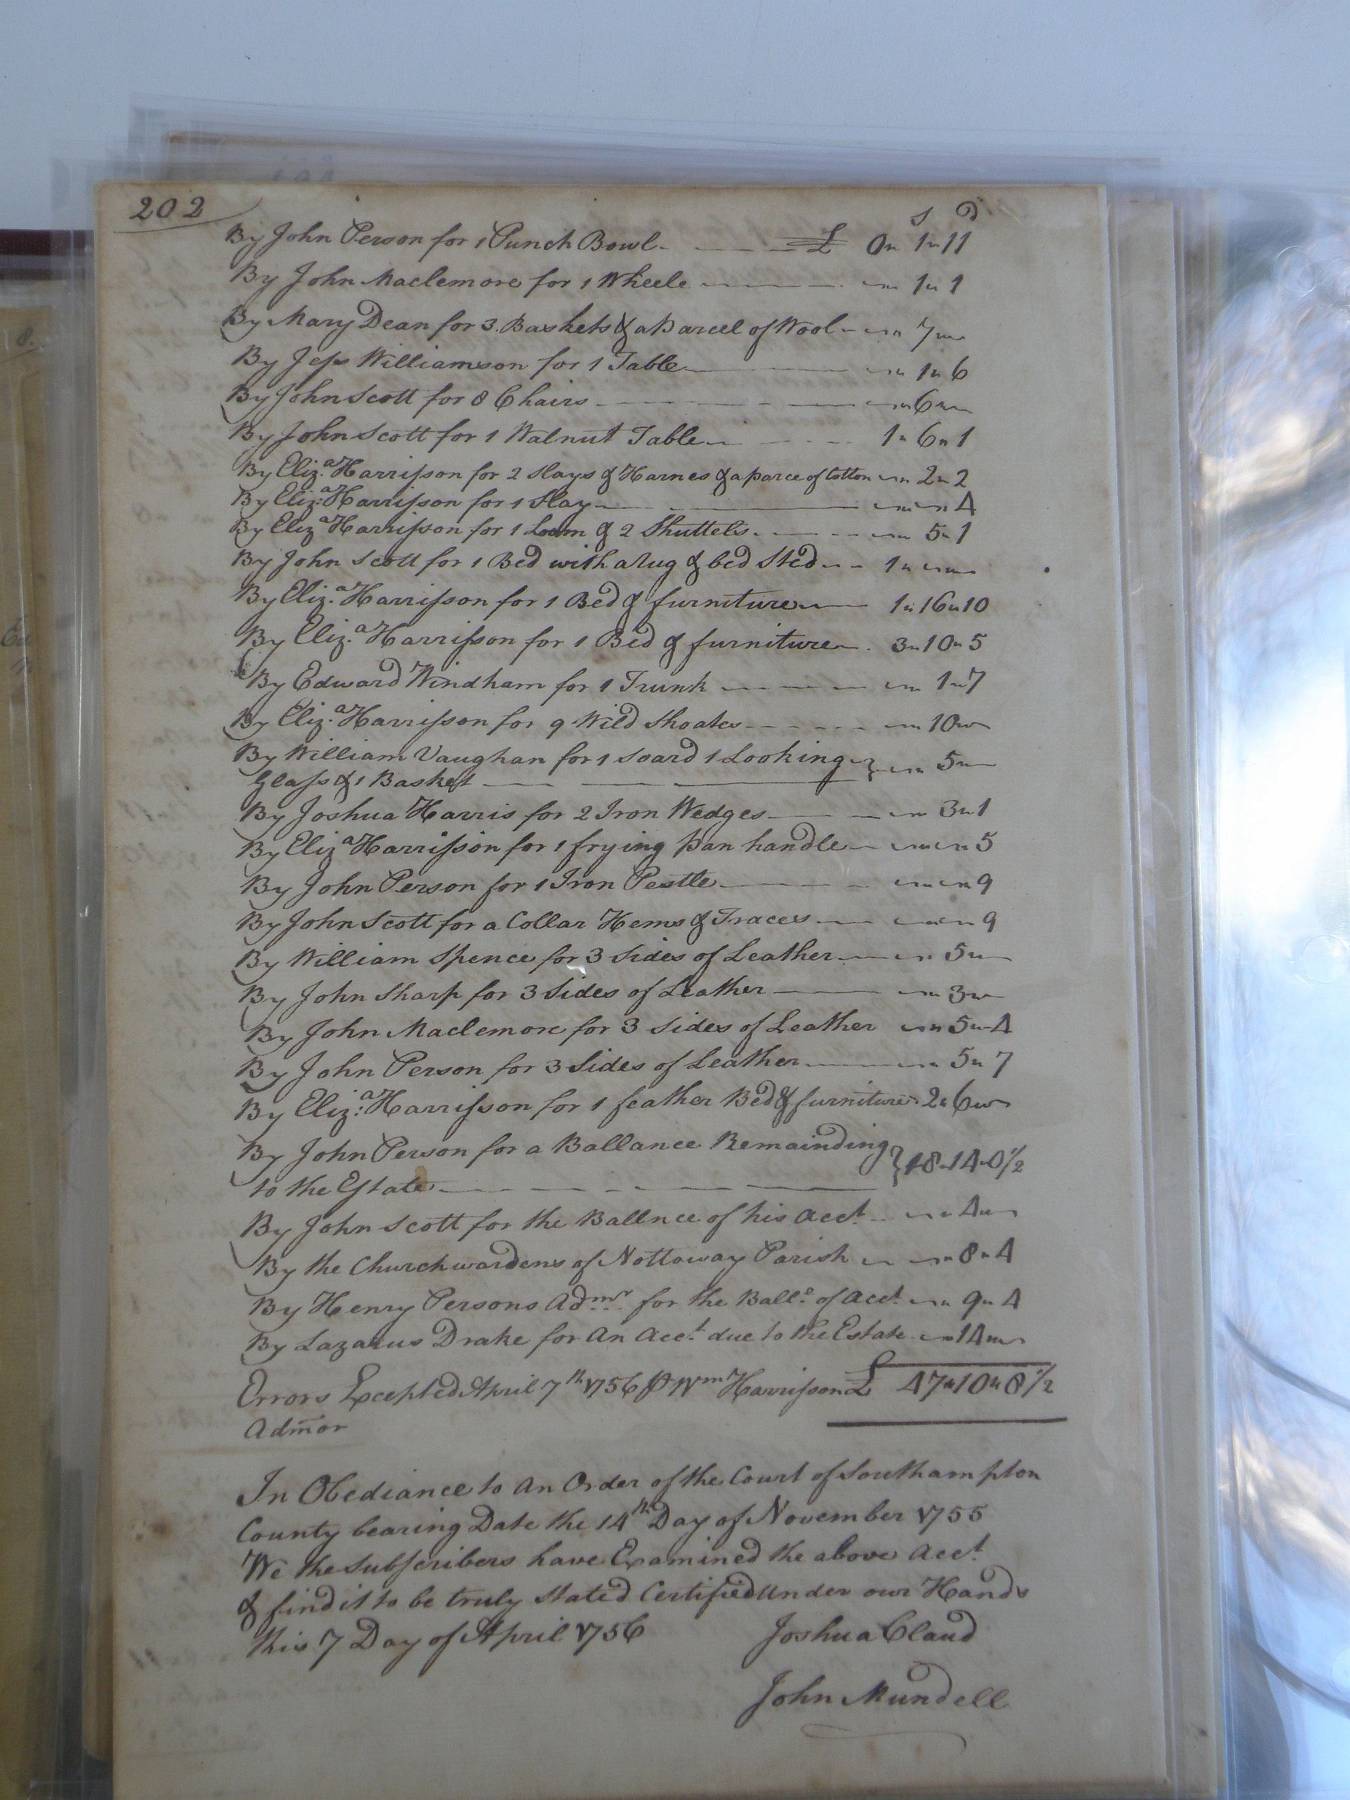 202
s d
By John Person for 1 Punch Bowl £ 0 " 1 " 11
By John Maclemore for 1 Wheele " 1 " 1
By Mary Dean for 3 Baskets & a Parcel of Wool " 7 "
By Jess Williamson for 1 Table " 1 " 6
By John Scott for 8 Chairs " 6 "
By John Scott for 1 Walnut Table 1 " 6 " 1
By Eliz:a Harrisson for 2 Slays & Harnes & a parce of Cotton " 2 " 2
By Eliz:a Harrisson for 1 Slay " " 4
By Eliz:a Harrisson for 1 Loom & 2 Shuttels " 5 " 1
By John Scott for 1 Bed with a Rug & bed Sted 1 " "
By Eliz:a Harrisson for 1 Bed & furniture 1 " 16 " 10
By Eliz:a Harrisson for 1 Bed & furniture 3 " 10 " 5
By Edward Windham for 1 Trunk " 1 " 7
By Eliz:a Harrisson for 9 Wild Shoates " 10 "
By William Vaughan for 1 Soard 1 Looking } " 5 "
Glass & 1 Basket
By Joshua Harris for 2 Iron Wedges " 3 " 1
By Eliz:a Harrisson for 1 frying pan handle " " 5
By John Person for 1 Iron Pestle " " 9
By John Scott for a Collar Hems & Traces " " 9
By William Spence for 3 Sides of Leather " 5 "
By John Sharp for 3 Sides of Leather " 3 "
By John Maclemore for 3 Sides of Leather " 5 " 4
By John Person for 3 Sides of Leather " 5 " 7
By Eliz:a Harrisson for 1 feather Bed & furniture 2 " 6 "
By John Person for a Ballance Remainding } 18 " 14 " 0½
to the Estate
By John Scott for the Ballnce of his acct " 4 "
By the Churchwardens of Nottoway Parish " 8 " 4
By Henry Persons Admr for the Ball:e of acct " 9 " 4
By Lazarus Drake for an Acc:t due to the Estate " 14 "
Errors Excepted April 7th 1756 P Wm Harrisson £ 47 " 10 " 8½
Admor
In Obediance to an Order of the Court of Southampton
County bearing Date the 14th Day of November 1755
We the Subscribers have Examined the above Acc:t
& find it to be truly Stated Certified under our Hands
this 7 Day of April 1756 Joshua Claud
John Mundell